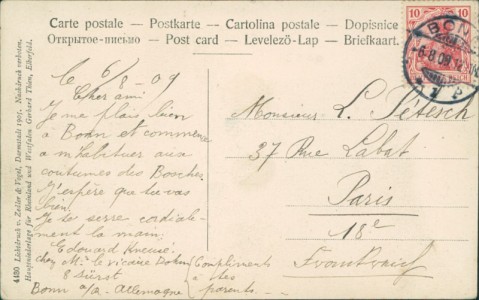 Carte postale – Postkarte – Cartolina postale – Dopisnice
Открытое-письмо – Post card – Levelezö-Lap – Briefkaart.
10
BONN
6.8.09.
1 P
C 6/8-09
Cher ami
Je me plais bien
à Bonn et commence
a m'habituer aux
coutumes des Bosches.
J'espère que tu vas
bien.
Je te serre cordiale-
ment la main.
Edouard
chez Mr. le vicaire Dohm
8 Sürst
Bonn a/R - Allemagne
Compliments
à tes
parents. –
Monsieur L. Pétesch
37 Rue Labat
Paris
18e
Frankreich
4480 Lichtdruck v. Zedler & Vogel, Darmstadt 1905. Nachdruck verboten.
Hauptniederlage für Rheinland und Westfalen Gerhard Thien, Elberfeld.